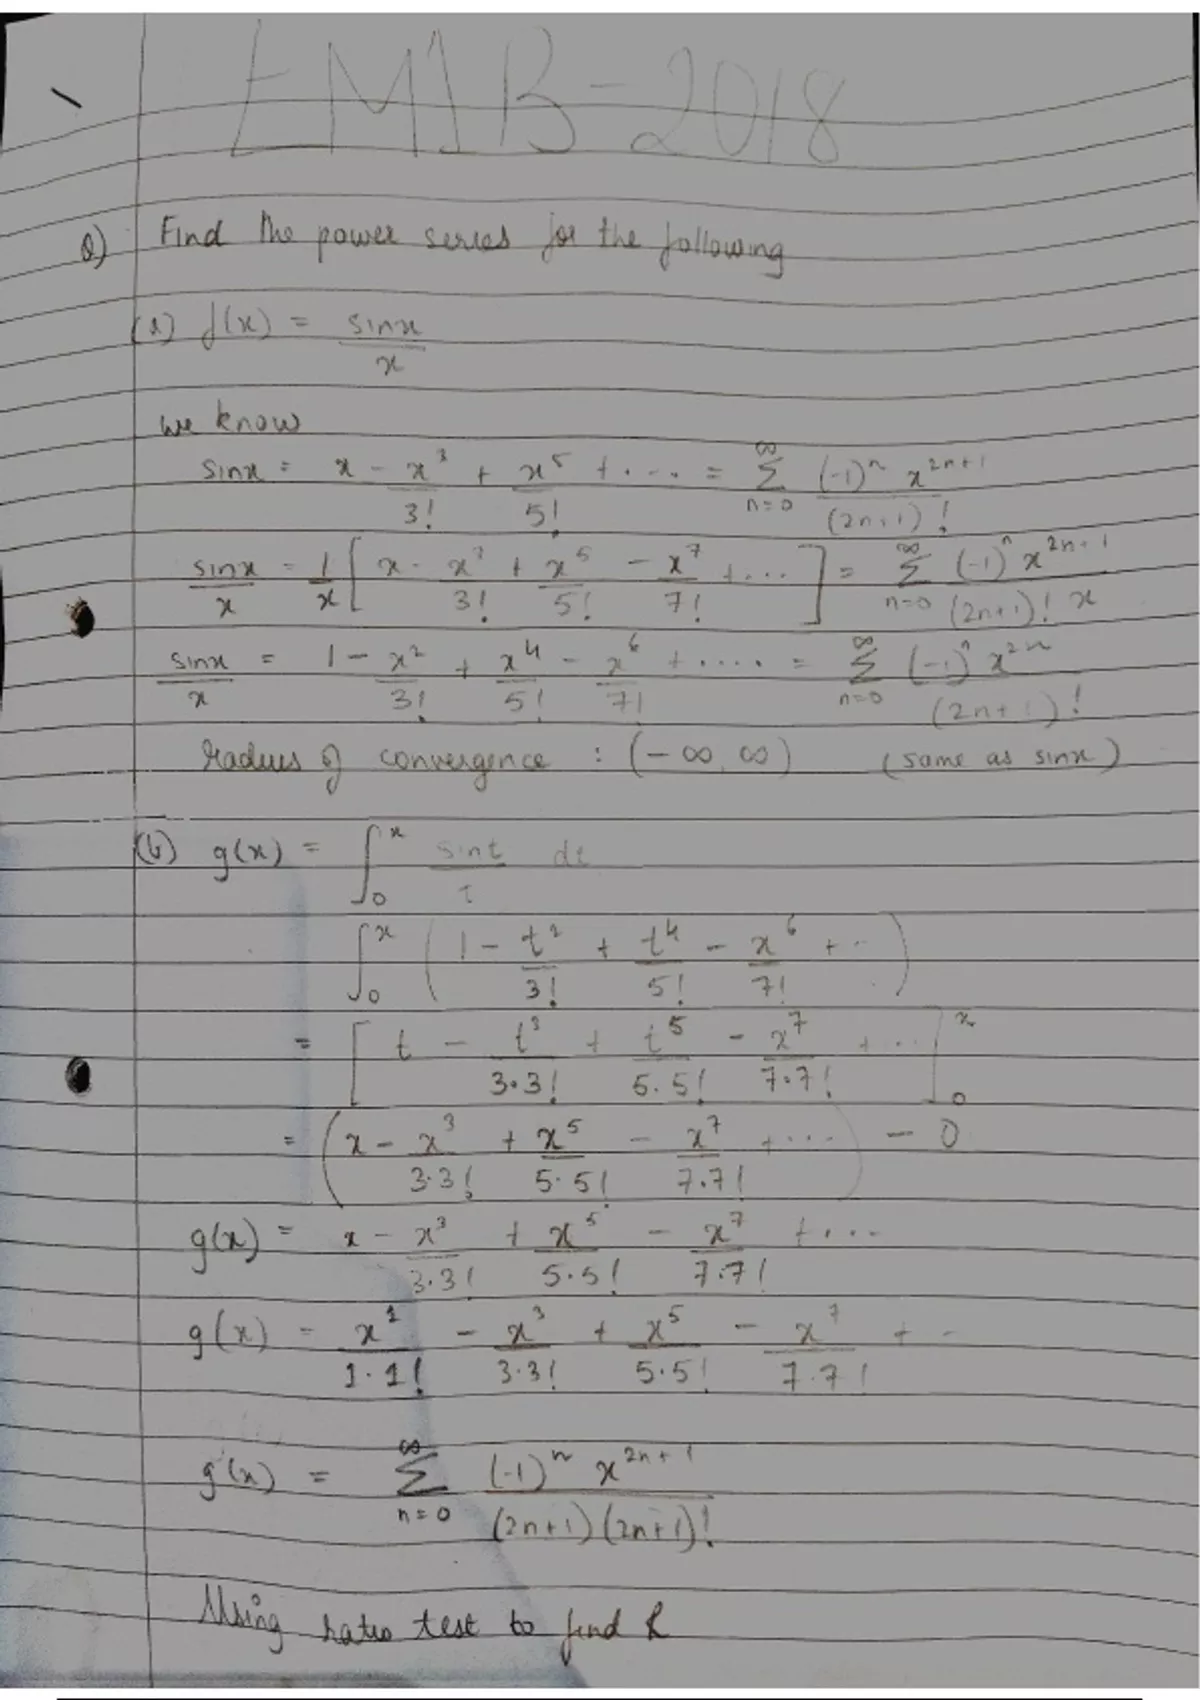 EM1B-2018
Q) Find the power series for the following
(a) f(x) = sinx/x
we know
sinx = x - x^3/3! + x^5/5! + .... = ∑_{n=0}^{∞} (-1)^n x^{2n+1}/(2n+1)!
sinx/x = 1/x [ x - x^3/3! + x^5/5! - x^7/7! + ... ] = ∑_{n=0}^{∞} (-1)^n x^{2n+1}/(2n+1)! x
sinx/x = 1 - x^2/3! + x^4/5! - x^6/7! + .... = ∑_{n=0}^{∞} (-1)^n x^{2n}/(2n+1)!
radius of convergence : (-∞, ∞) (same as sinx)
(b) g(x) = ∫_0^x sint/t dt
∫_0^x ( 1 - t^2/3! + t^4/5! - x^6/7! + .. )
= [ t - t^3/3·3! + t^5/5·5! - x^7/7·7! + ... ]_0^x
= ( x - x^3/3·3! + x^5/5·5! - x^7/7·7! + ... ) - 0
g(x) = x - x^3/3·3! + x^5/5·5! - x^7/7·7! + ...
g(x) = x^1/1·1! - x^3/3·3! + x^5/5·5! - x^7/7·7! + -
g(x) = ∑_{n=0}^{∞} (-1)^n x^{2n+1}/(2n+1)(2n+1)!
Using ratio test to find R